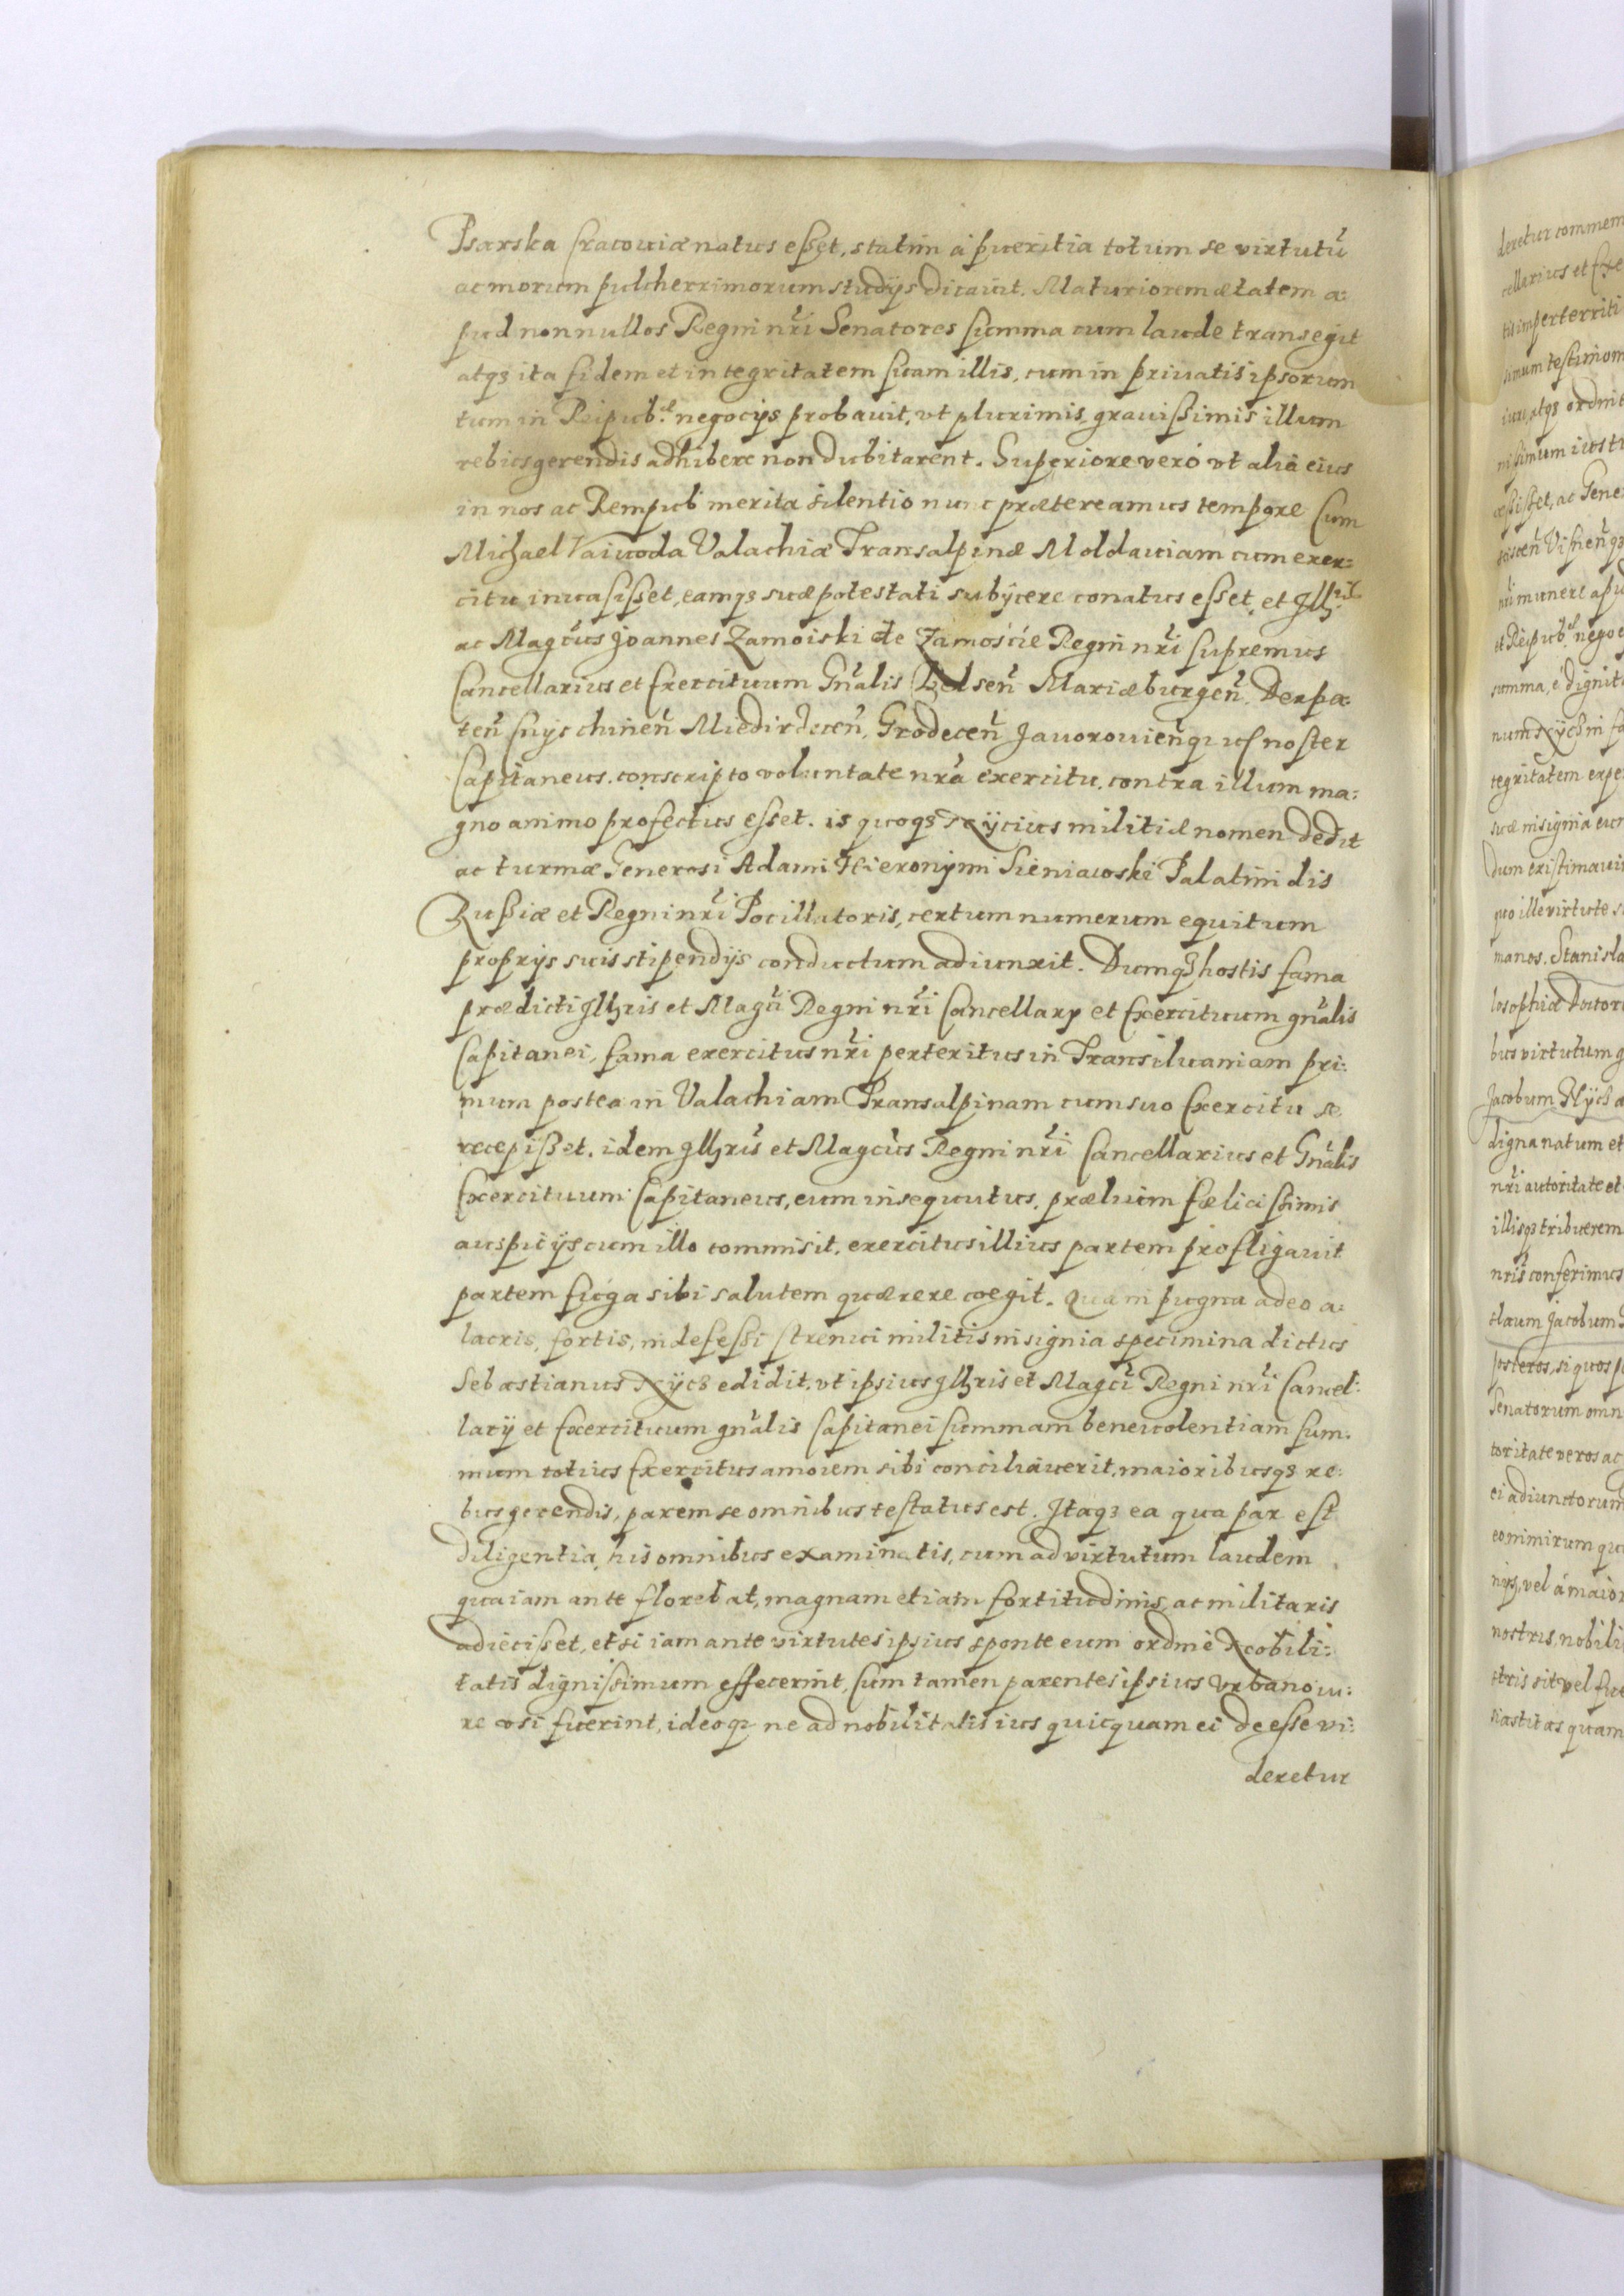 Psarska Cracouiæ natus esset, statim à pueritia totum se virtutũ
ac morum pulcherrimorum studijs dicauit. Maturiorem ætatem a:
pud nonnullos Regni nr̃i Senatores summa cum laude transegit
atqȝ ita fidem et integritatem suam illis, cum in priuatis ipsorum
tum in Reipub: negocijs probauit, vt plurimis, grauissimis illum
rebus gerendis adhibere non dubitarent. Superiore verò vt alia eius
in nos ac Rempub merita silentio nunc prætereamus tempore Cum
Michael Vaiuoda Valachiæ Transalpinæ Moldauiam cum exer:
citu inuasisset, eamqȝ suæ potestati subijcere conatus esset, et Illr̃is
ac Magcũs Joannes Zamoiski de Zamoście Regni nr̃i supremus
Cancellarius et Exercituum Gñalis Belseñ Mariæburgeñ. Derpa-
teñ Knyschineñ Miedirzeceñ, Grodeceñ Jauorouieñqȝ noster
Capitaneus, conscripto voluntate nr̃a exercitu, contra illum ma:
gno animo profectus esset. is quoqȝ militiæ nomen dedit
ac turmæ Generosi Adami Hieronymi Sieniawski Palatinidis
Russiæ et Regni nr̃i Pocillatoris, certum numerum equitum
proprijs suis stipendijs conductum adiunxit. Dumqȝ hostis fama
prædicti Illr̃is et Magcĩ Regni nr̃i Cancellarij et Exercituum gñalis
Capitanei, fama exercitus nr̃i perteritus in Transiluaniam pri:
mum postea in Valachiam Transalpinam cum suo Exercitu se
recepisset. idem Illr̃is et Magcũs Regni nr̃i Cancellarius et Gñalis
Exercituum Capitaneus, eum insequutus, prælium fælicissimis
auspicijs cum illo commisit, exercitus illius partem profligauit
partem fuga sibi salutem quærere coegit. Qua in pugna adeo a:
lacris, fortis, indefessi strenui militis insignia specimina dictus
Sebastianus edidit, vt ipsius Illr̃is et Magcĩ Regni nr̃i Cancel:
larij et Exercituum gñalis Capitanei summam beneuolentiam sum:
mum totius Exercitus amorem sibi conciliauerit, maioribusqȝ re:
bus gerendis, parem se omnibus testatus est. Itaqȝ ea qua par est
diligentia, his omnibus examinatis, cum ad virtutum laudem
qua iam ante florebat, magnam etiam fortitudinis, ac militaris
adiecisset, etsi iam ante virtutes ipsius sponte eum ordine Nobili:
tatis dignissimum effecerint, Cum tamen parentes ipsius Vrbano iu:
re vsi fuerint, ideoqȝ ne ad nobilitatis ius quicquam ei deesse vi:
deretur